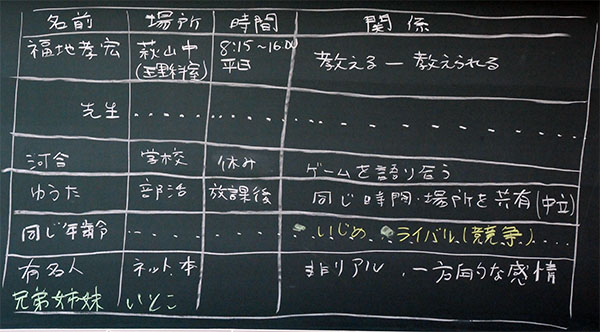 名前 場所 時間 関係
福地孝宏 萩山中(理科室) 8:15～16:00 平日 教える ― 教えられる
先生 ・・・・・・ ・・・・・・ ・・・・・・・・・・・・
河合 学校 休み ゲームを語り合う
ゆうた 部活 放課後 同じ時間・場所を共有(中立)
同じ年齢 ・・・・・・ ・・・・・・ いじめ ライバル(競争)・・・
有名人 ネット、本 非リアル、一方向的な感情
兄弟姉妹 いとこ